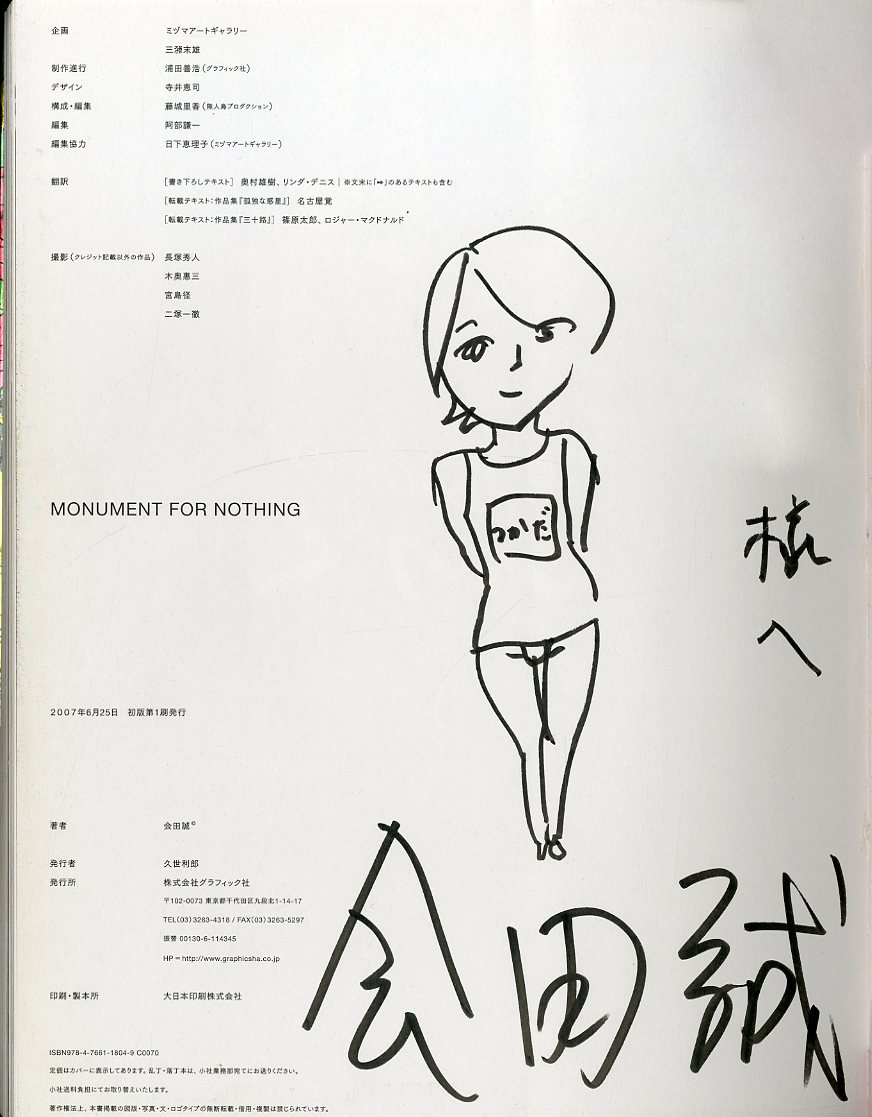 企画 ミヅマアートギャラリー
三潴末雄
制作進行 浦田善浩（グラフィック社）
デザイン 寺井恵司
構成・編集 藤城里香（無人島プロダクション）
編集 阿部謙一
編集協力 日下恵理子（ミヅマアートギャラリー）
翻訳 ［書き下ろしテキスト］ 奥村雄樹、リンダ・デニス｜※文末に「●●」のあるテキストも含む
［転載テキスト：作品集『孤独な惑星』］ 名古屋覚
［転載テキスト：作品集『三十路』］ 篠原太郎、ロジャー・マクドナルド
撮影（クレジット記載以外の作品） 長塚秀人
木奥惠三
宮島径
二塚一徹
つかだ
様へ
MONUMENT FOR NOTHING
2007年6月25日 初版第1刷発行
著者 会田誠©
発行者 久世利郎
発行所 株式会社グラフィック社
〒102-0073 東京都千代田区九段北1-14-17
TEL(03)3263-4318 / FAX(03)3263-5297
振替 00130-6-114345
HP = http://www.graphicsha.co.jp
印刷・製本所 大日本印刷株式会社
会田誠
ISBN978-4-7661-1804-9 C0070
定価はカバーに表示してあります。乱丁・落丁本は、小社業務部宛てにお送りください。
小社送料負担にてお取り替えいたします。
著作権法上、本書掲載の図版・写真・文・ロゴタイプの無断転載・借用・複製は禁じられています。